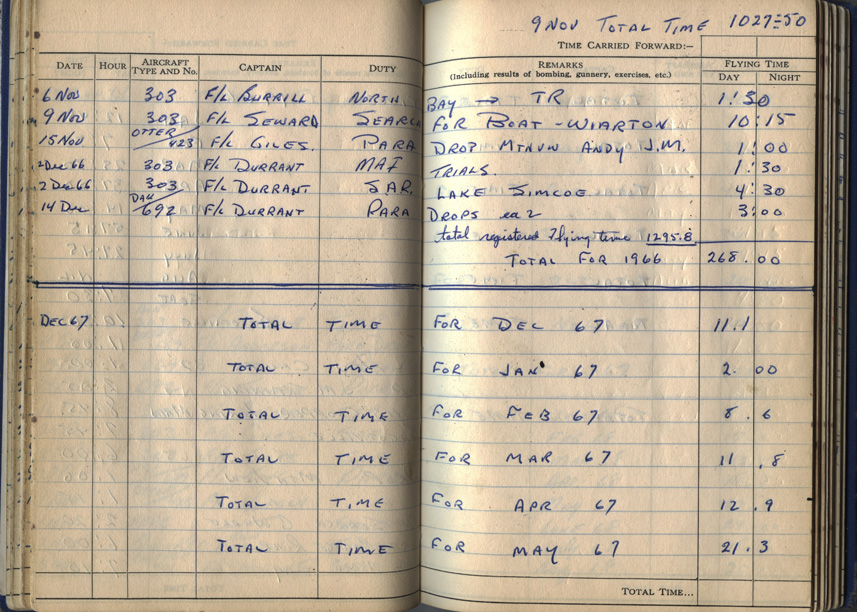 9 NOV TOTAL TIME 1027:50
TIME CARRIED FORWARD:—
DATE HOUR AIRCRAFT TYPE AND NO. CAPTAIN DUTY REMARKS (Including results of bombing, gunnery, exercises, etc.) FLYING TIME DAY NIGHT
6 NOV 303 F/L BURRILL NORTH BAY → TR 1:30
9 NOV 303 F/L SEWARD SEARCH FOR BOAT - WIARTON 10:15
15 NOV OTTER 423 F/L GILES PARA DROP MTNVW ANDY J.M. 1:00
2 Dec 66 303 F/L DURRANT MAI TRIALS. 1:30
2 Dec 66 303 F/L DURRANT SAR. LAKE SIMCOE 4:30
14 Dec DAK 692 F/L DURRANT PARA DROPS ea 2 3:00
total registered flying time 1295.8
TOTAL FOR 1966 268.00
DEC 67 TOTAL TIME FOR DEC 67 11.1
TOTAL TIME FOR JAN 67 2.00
TOTAL TIME FOR FEB 67 8.6
TOTAL TIME FOR MAR 67 11.8
TOTAL TIME FOR APR 67 12.9
TOTAL TIME FOR MAY 67 21.3
TOTAL TIME...